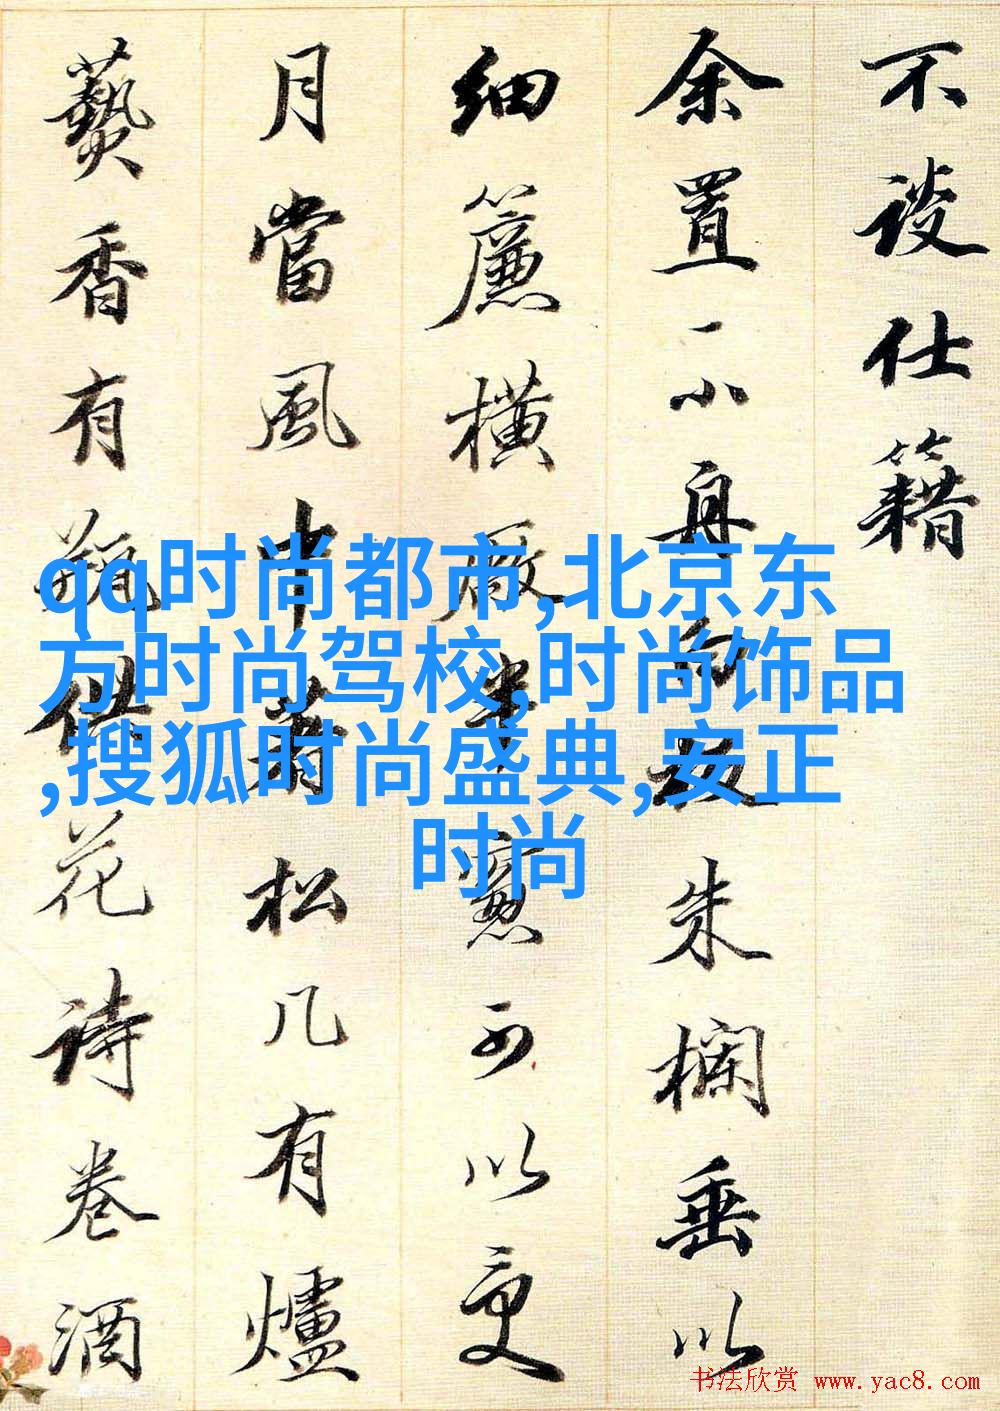 不談仕籍
余置一小舟朱欄垂以
細簾橫廠半窻可以更
月當風中著松几有爐
爇香有瓶供花詩卷酒
qq时尚都市,北京东
方时尚驾校,时尚饰品
,搜狐时尚盛典,安正
时尚
书法欣赏 www.yac8.com